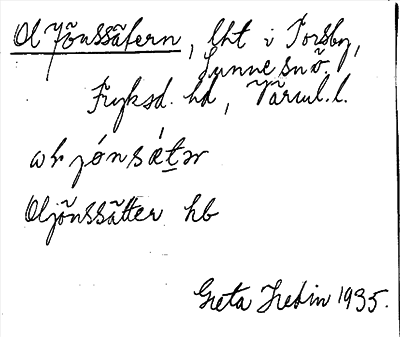 Ol Jönssätern, lht i Torsby,
Sunne snö.
Fryksd. hd, Värml. l.
ω̄r jónsǽtər
Oljönssätter hb
Greta Hedin 1935.